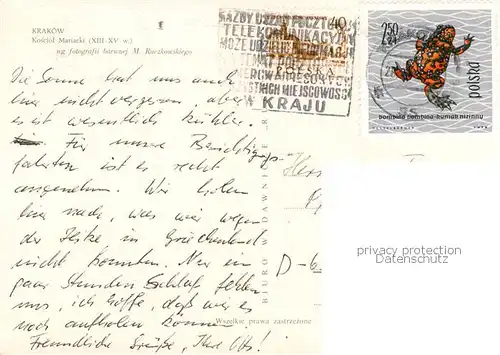 KRAKÓW
Kościół Mariacki (XIII-XV w.)
wg fotografii barwnej M. Raczkowskiego
Die Sonne hat uns auch
hier nicht vergessen, aber
es ist wesentlich kühler.
Für unsere Besichtigungs-
fahrten ist es recht
angenehm. Wir holen
hier nach, was wir wegen
der Hitze in Griechenland
nicht konnten. Nur ein
paar Stunden Schlaf fehlen
uns, ich hoffe, daß wir es
noch aufholen können
Freundliche Grüße, Ihre
Wszelkie prawa zastrzeżone
BIURO WYDAWNICZE
KAŻDY URZĄD POCZTOWO
TELEKOMUNIKACYJNY
MOŻE UDZIELIĆ INFORMACJI
NUMERÓW ADRESOWYCH
WSZYSTKICH MIEJSCOWOŚCI
KRAJU
40
2,50
ZŁ
polska
bombina bombina-kumak nizinny
D-6
privacy protection
Datenschutz